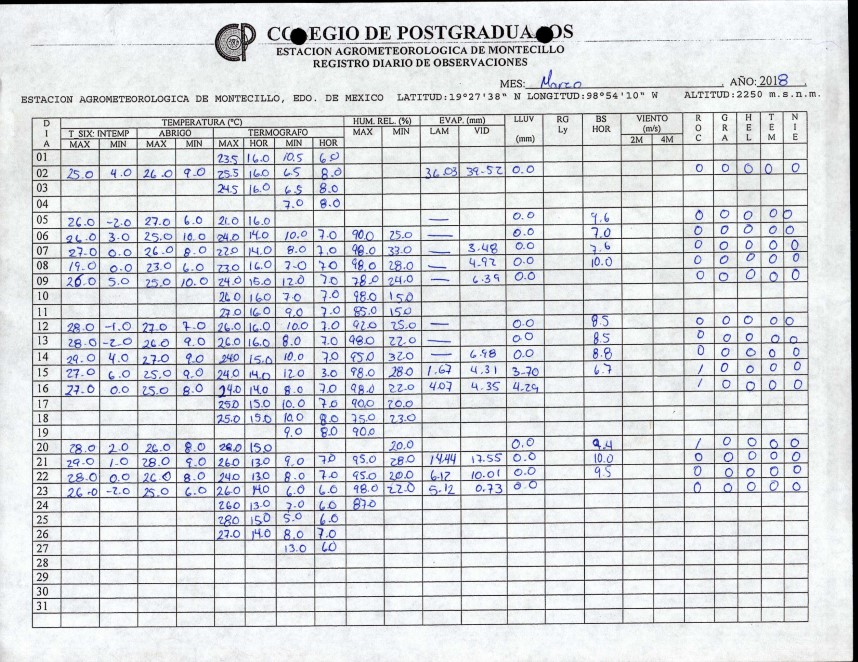 COLEGIO DE POSTGRADUADOS
ESTACION AGROMETEOROLOGICA DE MONTECILLO
REGISTRO DIARIO DE OBSERVACIONES
MES: Marzo AÑO: 2018
ESTACION AGROMETEOROLOGICA DE MONTECILLO, EDO. DE MEXICO LATITUD:19°27'38" N LONGITUD:98°54'10" W ALTITUD:2250 m.s.n.m.
DIA TEMPERATURA (°C) HUM. REL. (%) EVAP. (mm) LLUV (mm) RG Ly BS HOR VIENTO (m/s) ROC GRA HEL TEM NIE
T SIX: INTEMP ABRIGO TERMOGRAFO MAX MIN LAM VID 2M 4M
MAX MIN MAX MIN MAX HOR MIN HOR
01 23.5 16.0 10.5 6.0
02 25.0 4.0 26.0 9.0 25.5 16.0 6.5 8.0 36.03 39.52 0.0 0 0 0 0 0
03 24.5 16.0 6.5 8.0
04 7.0 8.0
05 26.0 -2.0 27.0 6.0 21.0 16.0 — 0.0 9.6 0 0 0 0 0
06 26.0 3.0 25.0 10.0 24.0 14.0 10.0 7.0 90.0 25.0 — 0.0 7.0 0 0 0 0 0
07 27.0 0.0 26.0 8.0 22.0 14.0 8.0 7.0 98.0 33.0 — 3.48 0.0 7.6 0 0 0 0 0
08 19.0 0.0 23.0 6.0 23.0 16.0 7.0 7.0 98.0 28.0 — 4.92 0.0 10.0 0 0 0 0 0
09 26.0 5.0 25.0 10.0 24.0 15.0 12.0 7.0 78.0 24.0 — 6.39 0.0 0 0 0 0 0
10 26.0 16.0 7.0 7.0 98.0 15.0
11 27.0 16.0 9.0 7.0 85.0 15.0
12 28.0 -1.0 27.0 7.0 26.0 16.0 10.0 7.0 92.0 25.0 — 0.0 8.5 0 0 0 0 0
13 28.0 -2.0 26.0 9.0 26.0 16.0 8.0 7.0 98.0 22.0 — 0.0 8.5 0 0 0 0 0
14 29.0 4.0 27.0 9.0 24.0 15.0 10.0 7.0 95.0 32.0 — 6.98 0.0 8.8 0 0 0 0 0
15 27.0 6.0 25.0 9.0 24.0 14.0 12.0 3.0 98.0 28.0 1.67 4.31 3.70 6.7 1 0 0 0 0
16 27.0 0.0 25.0 8.0 24.0 14.0 8.0 7.0 98.0 22.0 4.07 4.35 4.29 1 0 0 0 0
17 25.0 15.0 10.0 7.0 90.0 20.0
18 25.0 15.0 10.0 8.0 75.0 23.0
19 9.0 8.0 90.0
20 28.0 2.0 26.0 8.0 26.0 15.0 20.0 0.0 9.4 1 0 0 0 0
21 29.0 1.0 28.0 9.0 26.0 13.0 9.0 7.0 95.0 28.0 14.44 17.55 0.0 10.0 0 0 0 0 0
22 28.0 0.0 26.0 8.0 24.0 13.0 8.0 7.0 95.0 20.0 6.17 10.01 0.0 9.5 0 0 0 0 0
23 26.0 -2.0 25.0 6.0 26.0 14.0 6.0 6.0 98.0 22.0 5.12 0.73 0.0 0 0 0 0 0
24 26.0 13.0 7.0 6.0 87.0
25 28.0 15.0 5.0 6.0
26 27.0 14.0 8.0 7.0
27 13.0 6.0
28
29
30
31